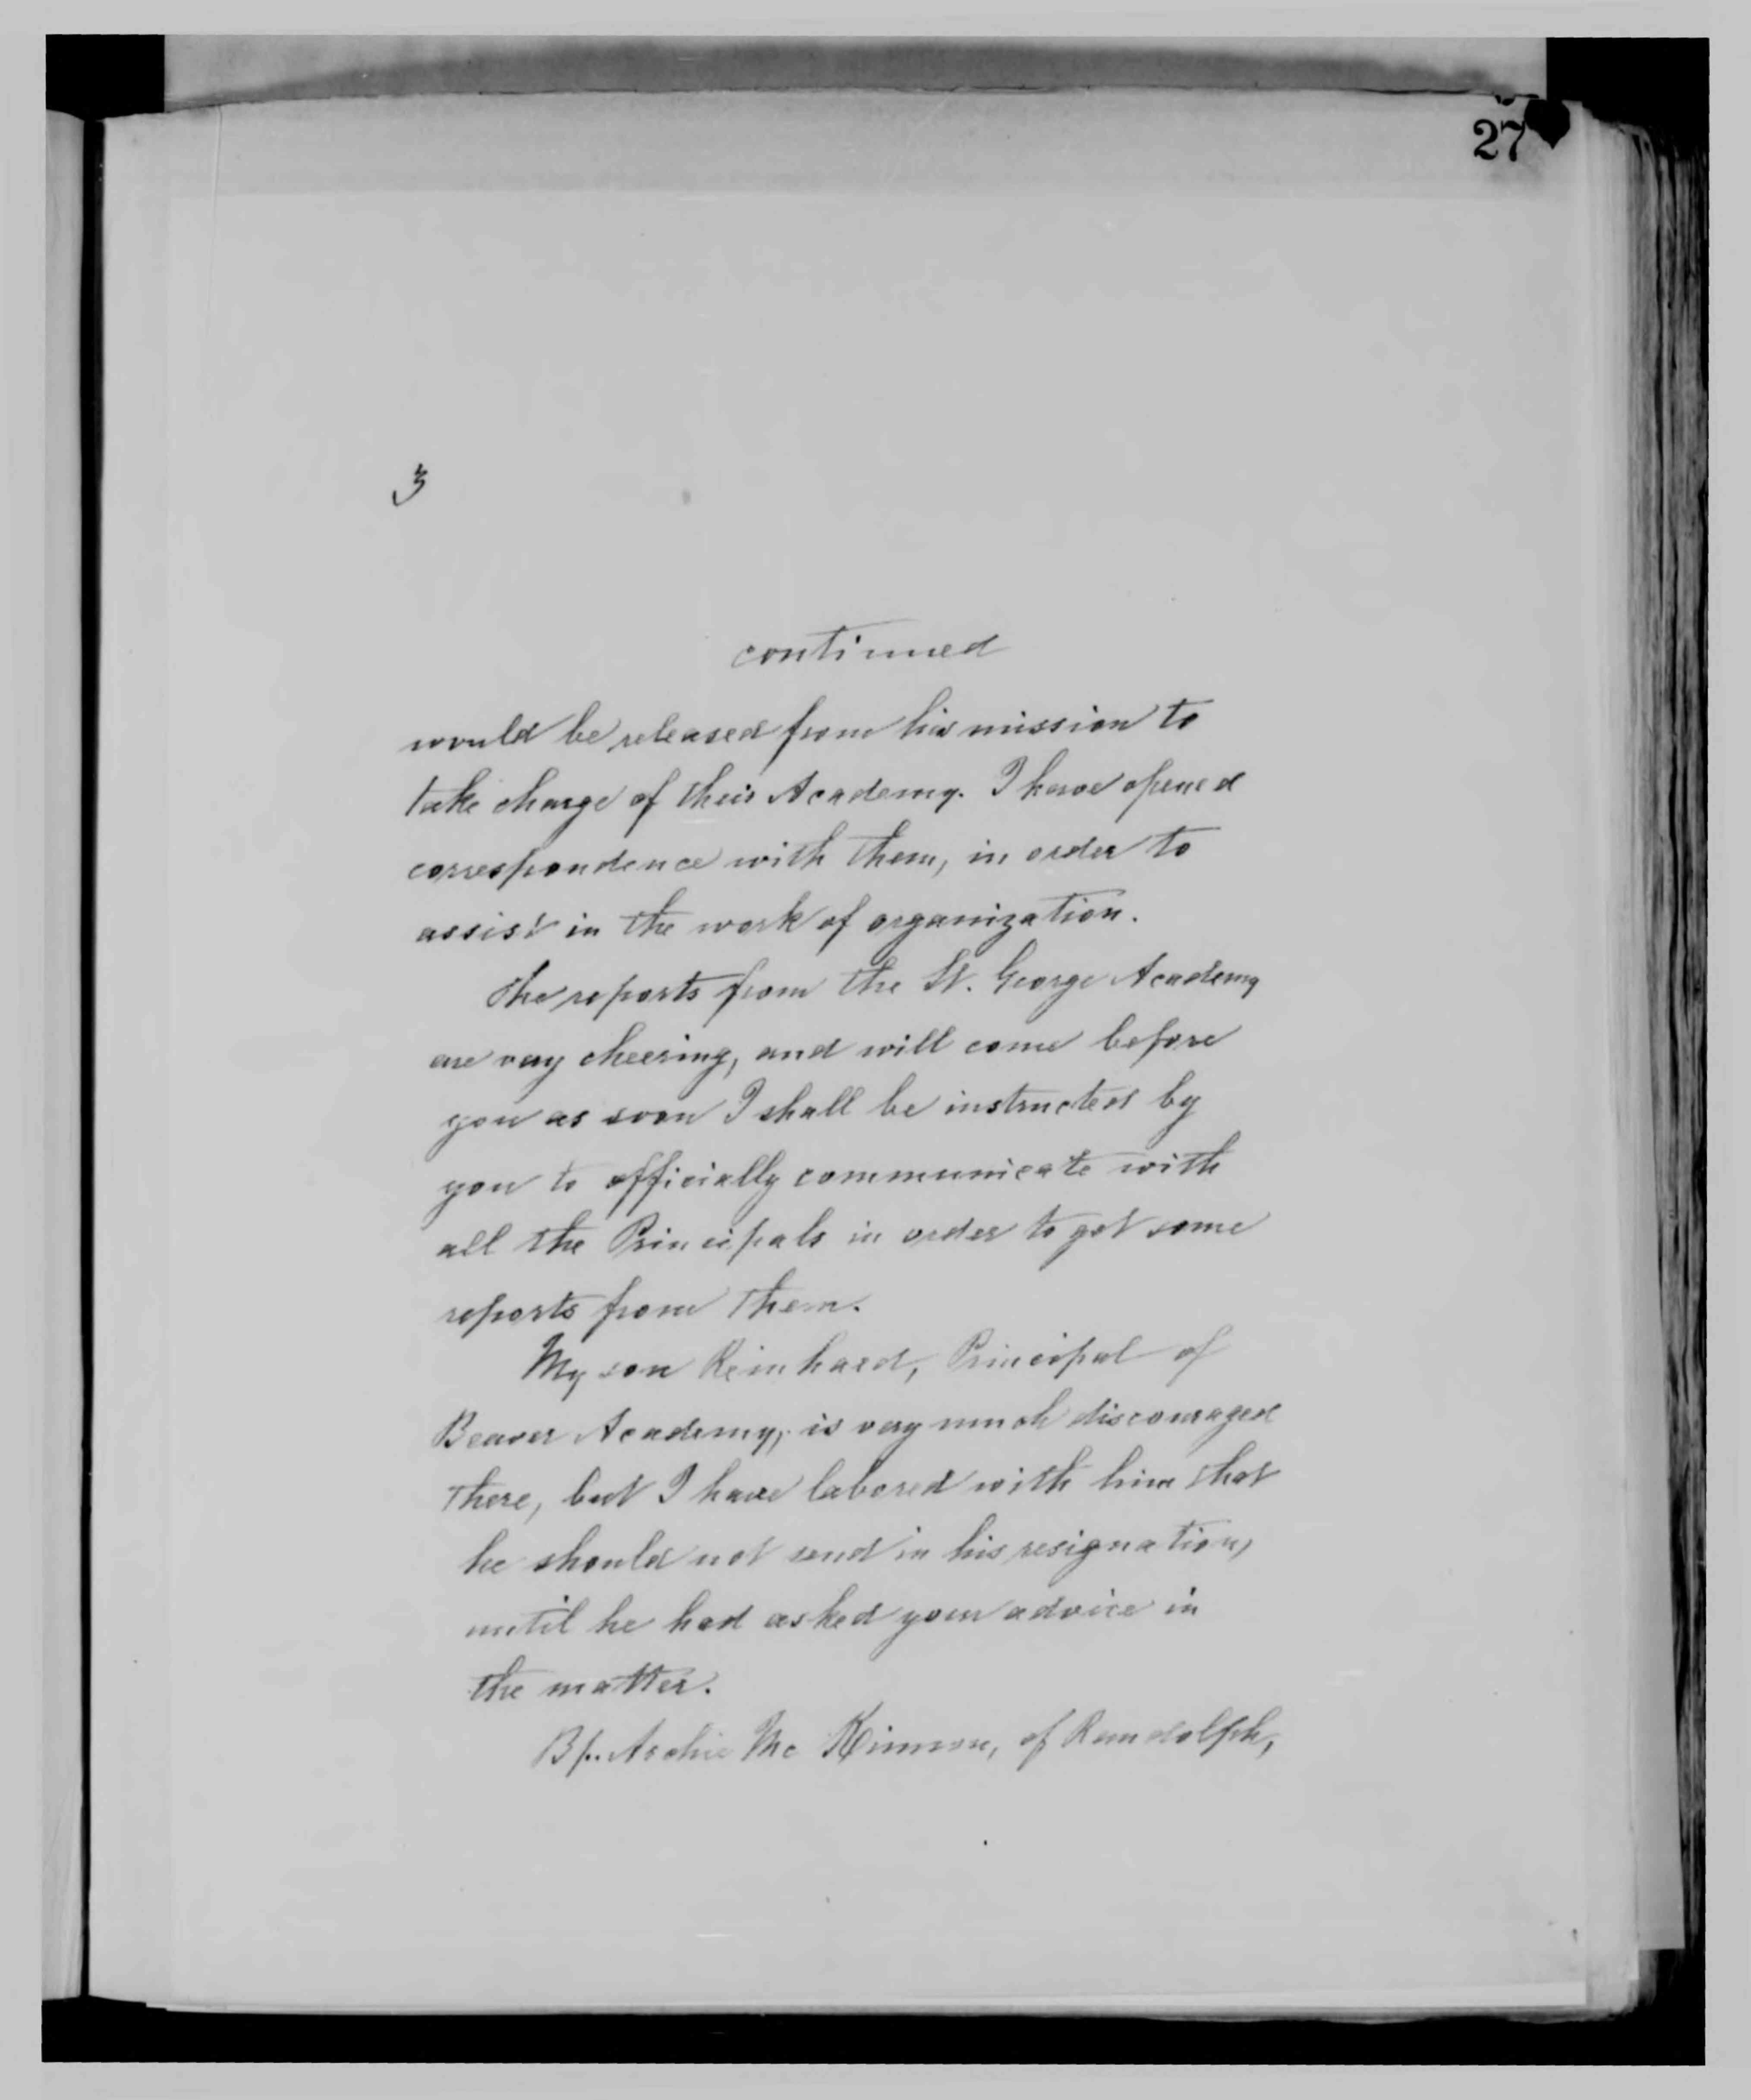 27
3
continued
would be released from his mission to
take charge of their Academy. I have opened
correspondence with them, in order to
assist in the work of organization.
The reports from the St. George Academy
are very cheering, and will come before
you as soon I shall be instructed by
you to officially communicate with
all the Principals in order to get some
reports from them.
My son Reinhard, Principal of
Beaver Academy, is very much discouraged
there, but I have labored with him that
he should not send in his resignation,
until he had asked your advice in
the matter.
Bp. Archie Mc Kinnon, of Randolph,